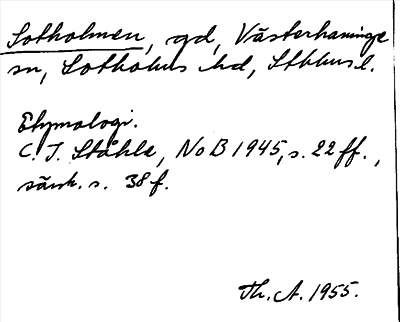 Sotholmen, gd, Västerhaninge
sn, Sotholms hd, Sthlms l.
Etymologi.
C. I. Ståhle, NoB 1945, s. 22 ff.,
särsk. s. 38 f.
Th. A. 1955.